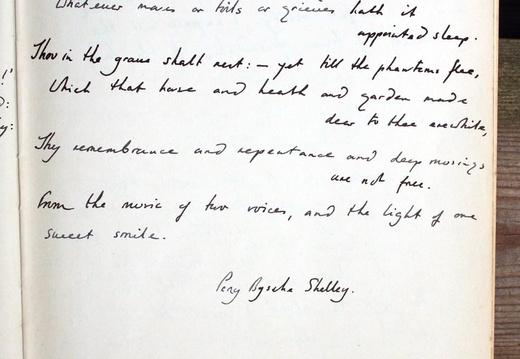 Whatever moves or toils or grieves hath it
appointed sleep.
Thou in the grave shalt rest: – yet till the phantoms flee,
Which that house and heath and garden made
dear to thee erewhile,
Thy remembrance and repentance and deep musings
are not free.
From the music of two voices, and the light of one
sweet smile.
Percy Bysche Shelley.
!'
:
y: